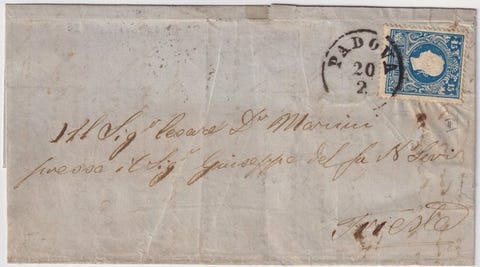 PADOVA
20
2
15 15
All Sigr Cesare Dr Marini
presso il Sigr Giuseppe del fu N Levi
Trieste